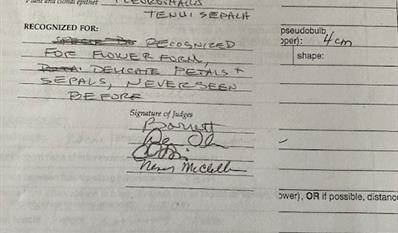 Plant and clonal epithet PLEUROTHALLIS
TENUISEPALA
RECOGNIZED FOR:
RECOGNIZED
FOR FLOWER FORM,
DELICATE PETALS +
SEPALS, NEVER SEEN
BEFORE
Signature of Judges
Barrett
Nancy McClellan
pseudobulb
oper): 4cm
shape:
ower), OR if possible, distanc